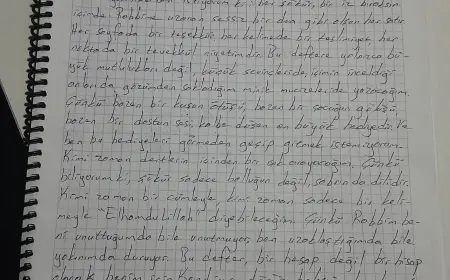 istiyorum ki her şükür, bir iz bıraksın
içimde Rabbime uzanan sessiz bir dua gibi olsun her satır
Her sayfada bir teşekkür her kelimede bir teslimiyet, her
noktada bir tevekkül niyetimdir. Bu deftere yalnızca bü-
yük mutlulukları değil, küçük sevinçleride, içimin inceldiği
anlarıda gözümden sakladığım minik mucizeleride yazacağım.
Çünkü bazen bir kuşun ötüşü, bazen bir çocuğun gülüşü,
bazen bir dostun sesi, kalbe düşen en büyük hediyedir. Ve
ben bu hediyeleri görmeden geçip gitmek istemiyorum.
Kimi zaman dertlerin içinden bir ışık arayacağım. Çünkü
biliyorum ki, şükür sadece bolluğun değil, sabrında dilidir.
Kimi zaman bir cümleyle, kimi zaman sadece bir keli-
meyle "Elhamdulillah" diyebileceğim. Çünkü Rabbim be-
ni unuttuğumda bile unutmuyor, ben uzaklaştığımda bile
yakınımda duruyor. Bu defter, bir hesap değil bir hisap